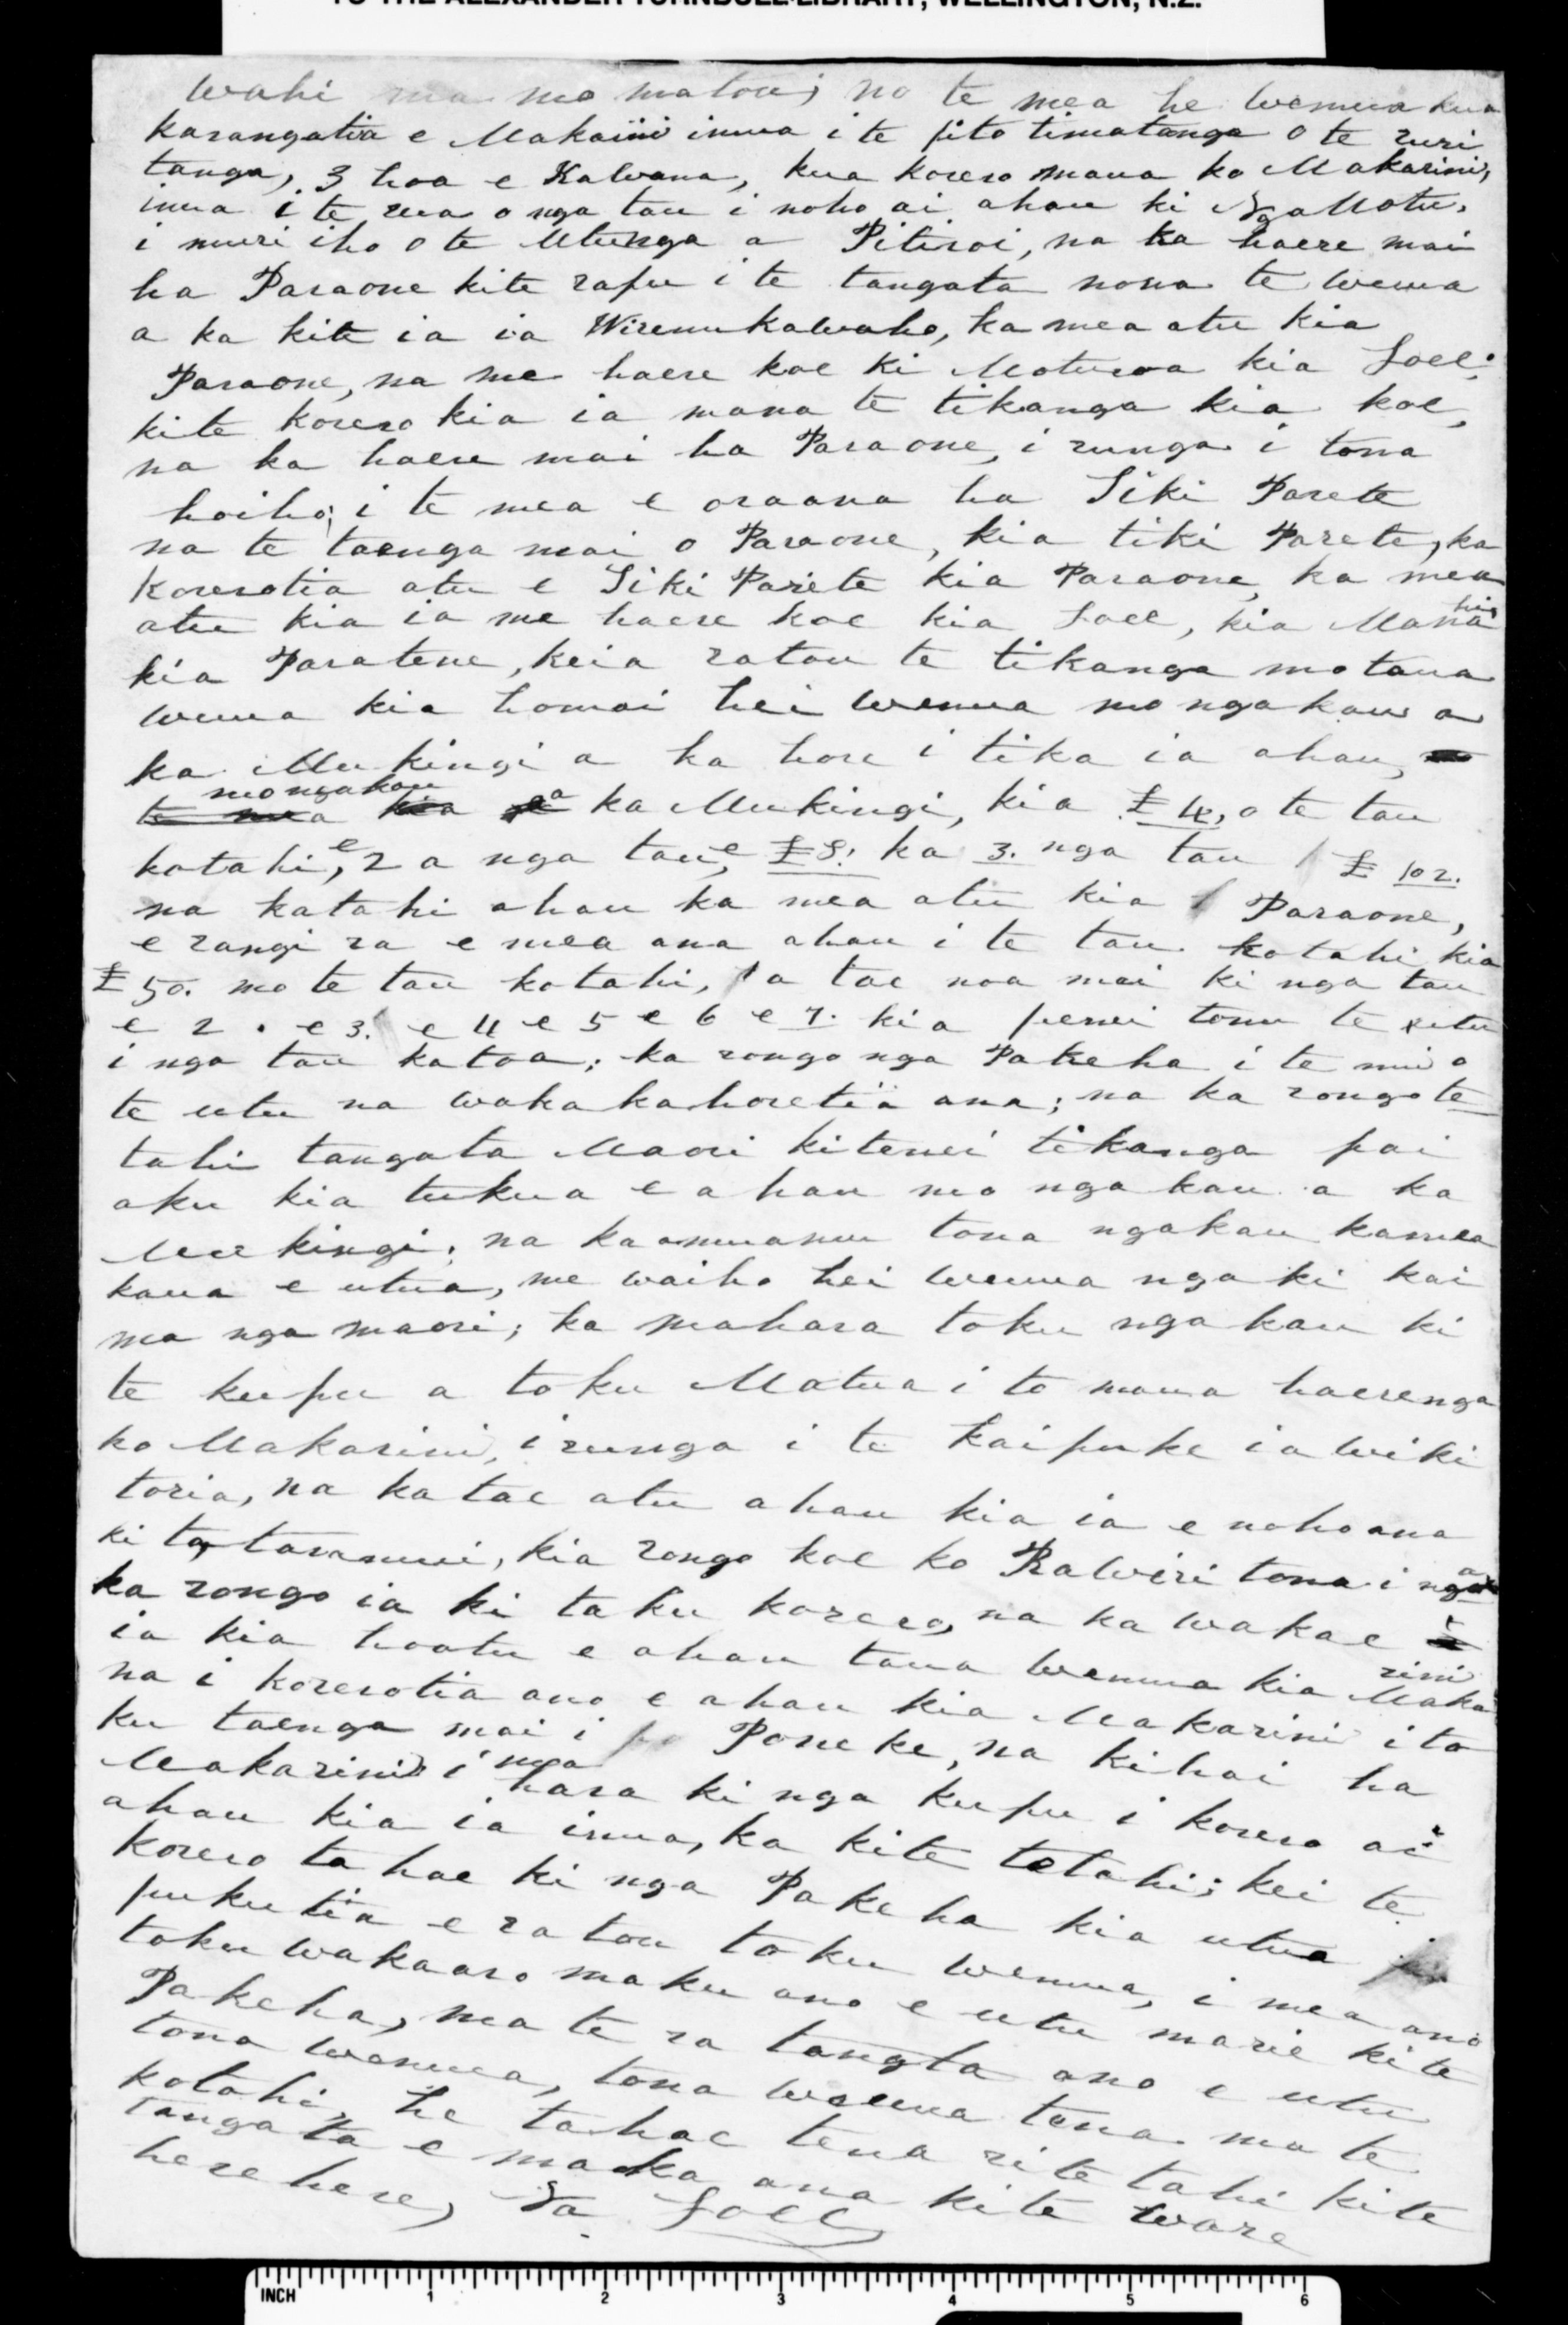 TO THE ALEXANDER TURNBULL LIBRARY, WELLINGTON, N.Z.
wahi ma mo matou; no te mea he wenua kua
karangatia e Makarini inua i te pito timatanga o te ruri
tanga, 3 hoa e Kawana, kua korero maua ko Makarini,
inua i te rua o nga tau i noho ai ahau ki Nga Motu,
i muri iho o te Utunga a Pitiroi, na ka haere mai
ha Paraone kite rapu i te tangata nona te wenua
a ka kite ia ia Wiremukawaho, ka mea atu kia
Paraone, na me haere koe ki Moturoa kia Poee;
kite korero kia ia mana te tikanga kia koe,
na ka haere mai ha Paraone, i runga i tona
hoiho; i te mea e oraana ha Tiki Parete
na te taenga mai o Paraone, kia tiki Parete, ka
korerotia atu e Tiki Parete kia Paraone, ka mea
atu kia ia me haere koe kia Poee, kia Manahi
kia Paratene, keia ratou te tikanga mo taua
wenua kia homai hei wenua mo nga kau a
ka Mukingi a ka hore i tika ia ahau,
mo nga kau
a ka Mukingi, kia £ 4, o te tau
kotahi, e 2 a nga tau, e £ 8! ka 3. nga tau £ 102.
na katahi ahau ka mea atu kia Paraone,
e rangi ra e mea ana ahau i te tau kotahi kia
£ 50. mo te tau kotahi, a tae noa mai ki nga tau
e 2. e 3. e 4 e 5 e 6 e 7. kia penei tonu te utu
i nga tau katoa; ka rongo nga Pakeha i te nui o
te utu na wakakahoretia ana; na ka rongo te
tahi tangata Maori kitenei tikanga pai
aku kia tukua e ahau mo nga kau a ka
Mukingi; na ka amuamu tona ngakau kamea
kaua e utua, me waiho hei wenua nga ki kai
ma nga maori; ka mahara toku nga kau ki
te kupu a toku Matua i to maua haerenga
ko Makarini, i runga i te kaipuke ia Wiki
toria, na ka tae atu ahau kia ia e noho ana
ki ta taranui, kia rongo koe ko Rawiri tona i ngoa
ka rongo ia ki taku korero, na ka wakae
ia kia hoatu e ahau taua wenua kia Makarini
na i korerotia ano e ahau kia Makarini i ta
ku taenga mai i Poneke, na kihai ha
Makarini i mahara ki nga kupu i korero ai
ahau kia ia inua, ka kite tetahi; kei te
korero tahae ki nga Pakeha kia utua
pukutia e ratou toku wenua, i mea ano
toku wakaaro maku ano e utu marie kite
Pakeha, ma te ra tangta ano e utu
tona wenua, tona wenua tona ma te
kotahi, he tahae tena rite tahi kite
tangata e maka ana kite ware
herehere, Na Poee
INCH 1 2 3 4 5 6